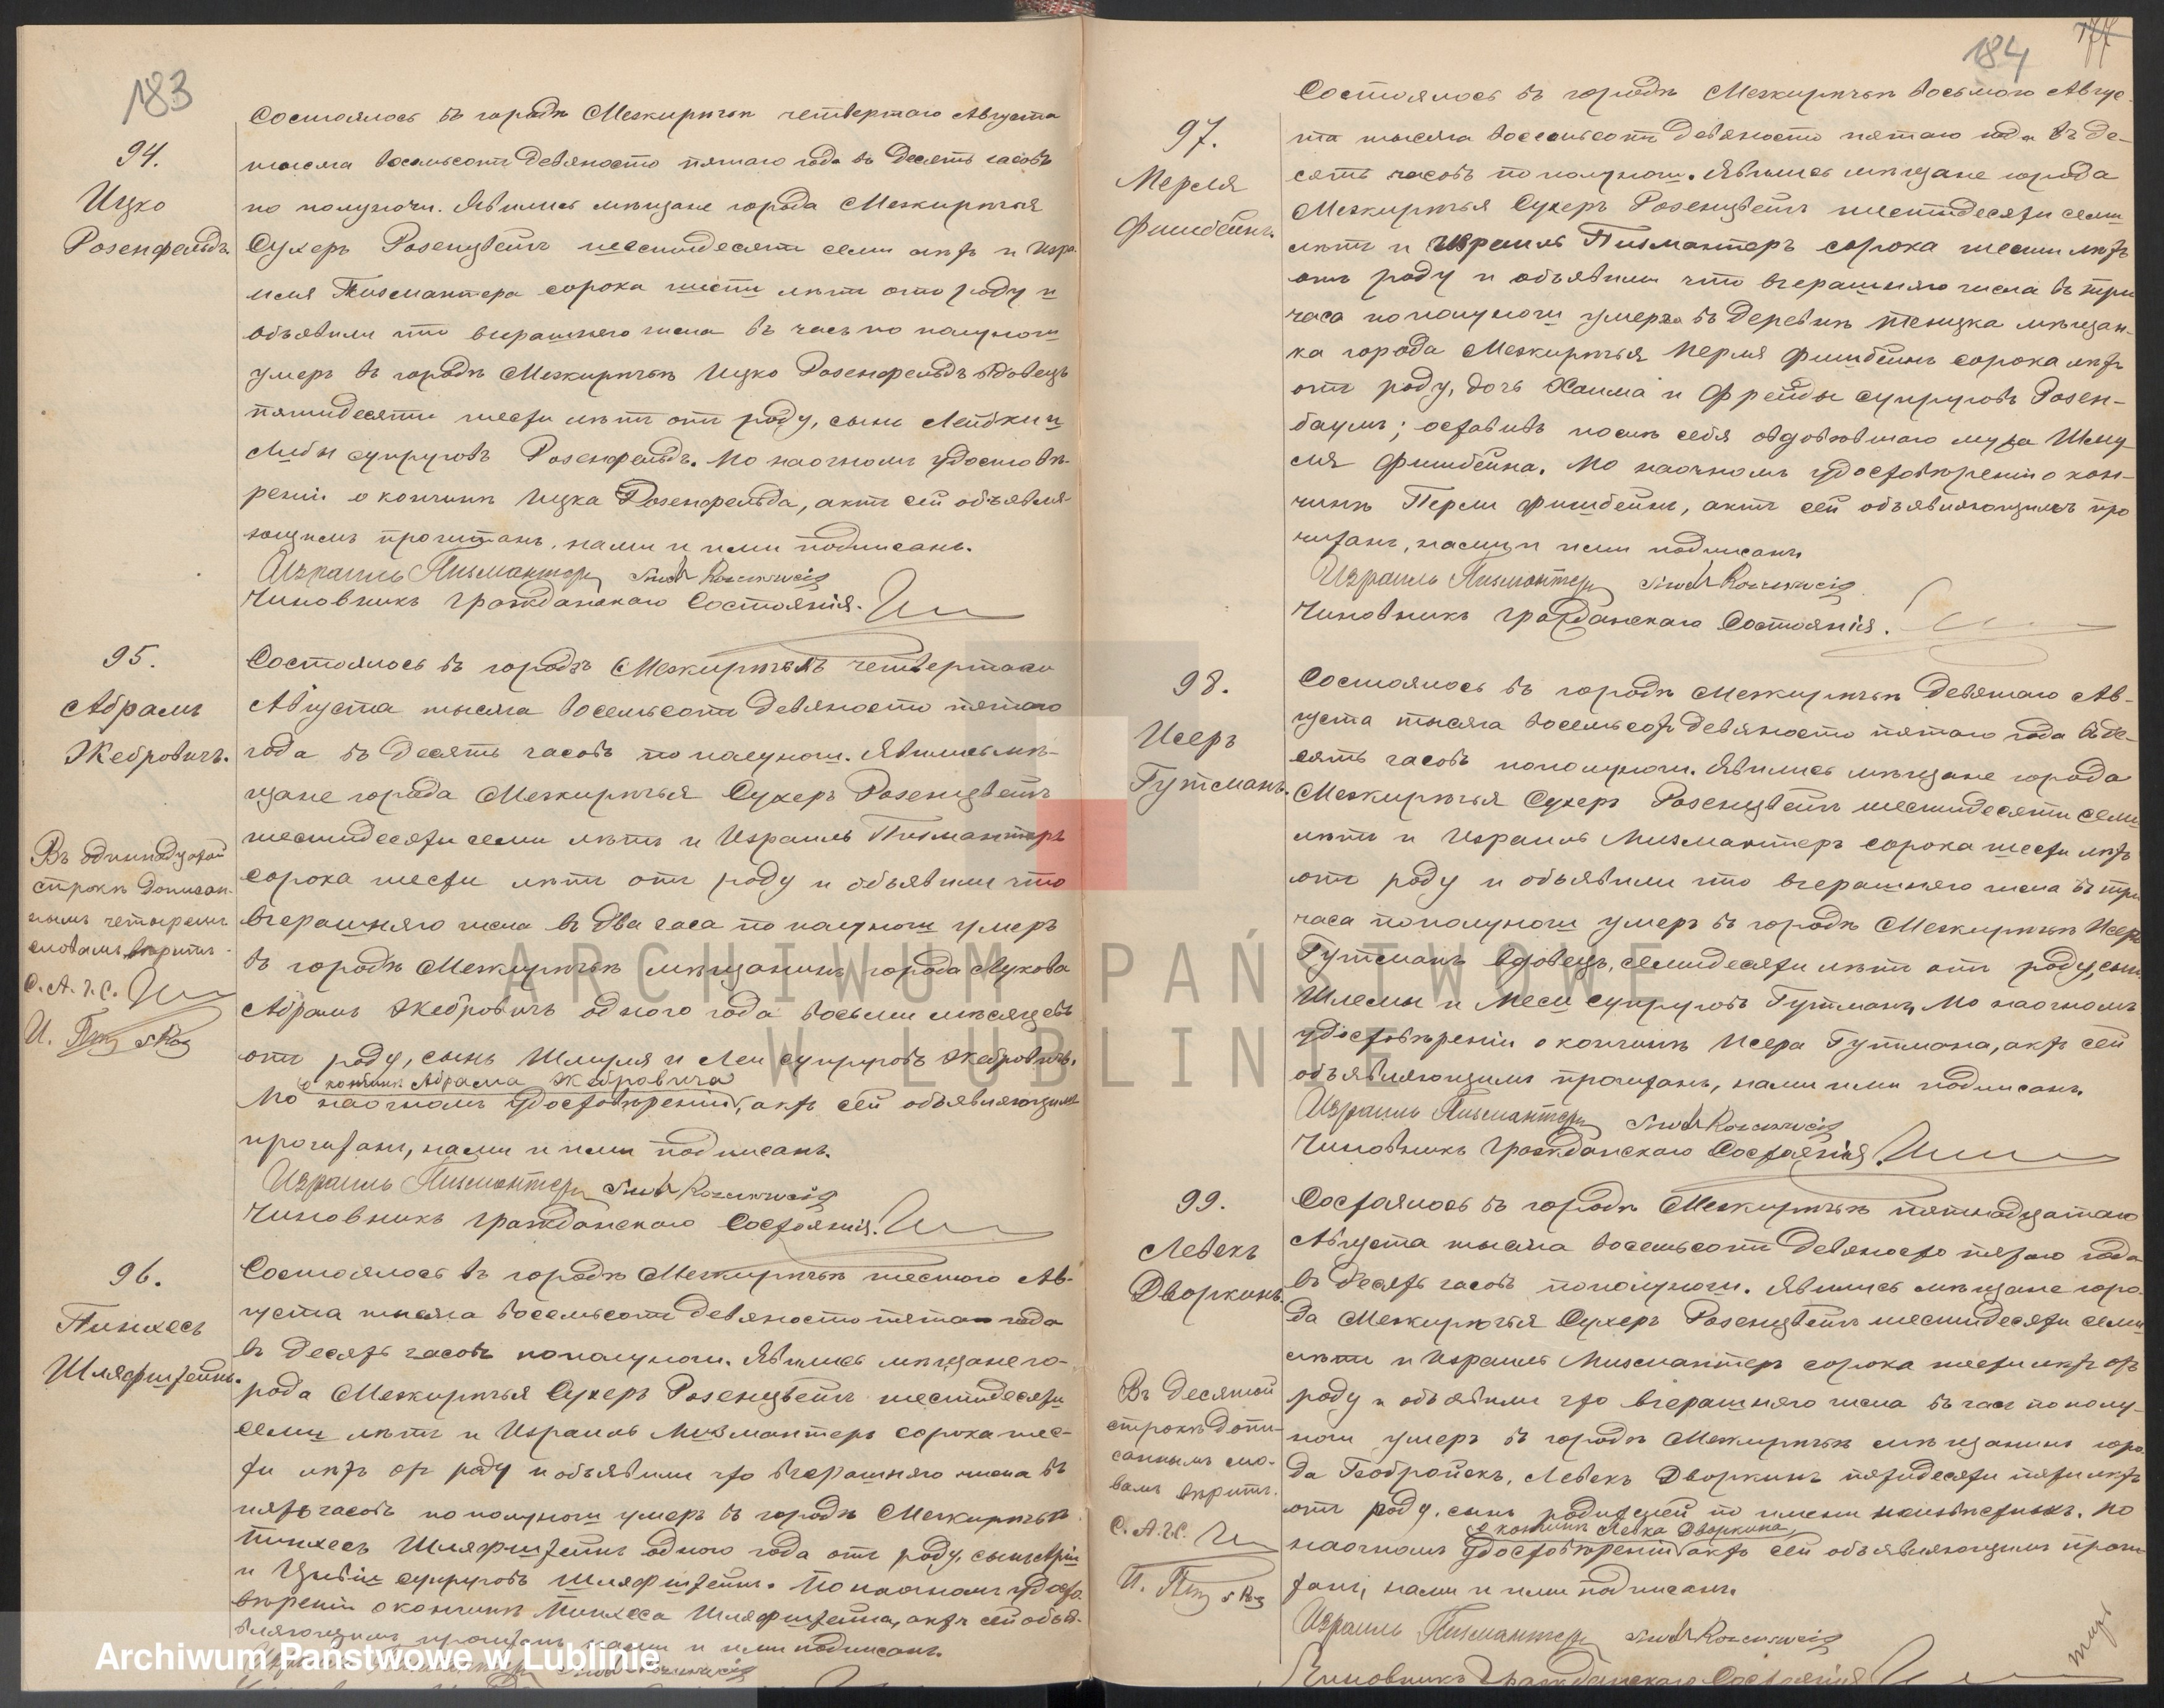 183
94.
Ицко
Розенфельдъ.
Состоялось въ городѣ Межирѣчьѣ четвертаго Августа
тысяча восемьсотъ девяносто пятаго года въ десять часовъ
по полуночи. Явились мѣщане города Межирѣчья
Сухеръ Розенцвейгъ шестидесяти семи лѣтъ и Изра-
иля Писмантера сорока шести лѣтъ отъ роду и
объявили что вчерашняго числа въ часъ по полуночи
умеръ въ городѣ Межирѣчьѣ Ицко Розенфельдъ вдовецъ
пятидесяти шести лѣтъ отъ роду, сынъ Лейбки и
Либы супруговъ Розенфельдъ. По наочномъ удостовѣ-
реніи о кончинѣ Ицка Розенфельда, актъ сей объявля-
ющимъ прочитанъ, нами и ими подписанъ.
Израиль Писмантеръ
Чиновникъ Гражданскаго Состоянія.
95.
Абрамъ
Жебровичъ.
Состоялось въ городѣ Межирѣчьѣ четвертаго
Августа тысяча восемьсотъ девяносто пятаго
года въ десять часовъ по полуночи. Явились мѣ-
щане города Межирѣчья Сухеръ Розенцвейгъ
шестидесяти семи лѣтъ и Израиль Писмантеръ
сорока шести лѣтъ отъ роду и объявили что
вчерашняго числа въ два часа по полуночи умеръ
въ городѣ Межирѣчьѣ мѣщанинъ города Лукова
Абрамъ Жебровичъ одного года восьми мѣсяцевъ
отъ роду, сынъ Шмуля и Леи супруговъ Жебровичъ.
о кончинѣ Абрама Жебровича
По наочномъ удостовѣреніи, актъ сей объявляющимъ
прочитанъ, нами и ими подписанъ.
Израиль Писмантеръ
Чиновникъ Гражданскаго Состоянія.
Въ одинадцатой
строкѣ дописан-
нымъ четыремъ
словамъ вѣрить.
С.А.Г.С.
И. Пис
96.
Пинхесъ
Шляфштейнъ.
Состоялось въ городѣ Межирѣчьѣ шестого Ав-
густа тысяча восемьсотъ девяносто пятаго года
въ десять часовъ по полуночи. Явились мѣщане го-
рода Межирѣчья Сухеръ Розенцвейгъ шестидесяти
семи лѣтъ и Израиль Писмантеръ сорока шес-
ти лѣтъ отъ роду и объявили что вчерашняго числа въ
пять часовъ по полуночи умеръ въ городѣ Межирѣчьѣ
Пинхесъ Шляфштейнъ одного года отъ роду, сынъ Арiи
и Цивіи супруговъ Шляфштейнъ. По наочномъ удосто-
вѣреніи о кончинѣ Пинхеса Шляфштейна, актъ сей объя-
вляющимъ прочитанъ, нами и ими подписанъ.
184
97.
Перля
Фишбейнъ.
Состоялось въ городѣ Межирѣчьѣ восьмого Авгус-
та тысяча восемьсотъ девяносто пятаго года въ де-
сять часовъ по полуночи. Явились мѣщане города
Межирѣчья Сухеръ Розенцвейгъ шестидесяти семи
лѣтъ и Израиль Писмантеръ сорока шести лѣтъ
отъ роду и объявили что вчерашняго числа въ три
часа по полуночи умерла въ деревнѣ мѣщан-
ка города Межирѣчья Перля Фишбейнъ сорока лѣтъ
отъ роду, дочь Хаима и Фрейды супруговъ Розен-
баумъ; оставивъ послѣ себя овдовѣвшаго мужа Шму-
ля Фишбейна. По наочномъ удостовѣреніи о кон-
чинѣ Перли Фишбейнъ, актъ сей объявляющимъ про
читанъ, нами и ими подписанъ
Израиль Писмантеръ
Чиновникъ Гражданскаго Состоянія.
98.
Исеръ
Гутманъ.
Состоялось въ городѣ Межирѣчьѣ девятаго Ав-
густа тысяча восемьсотъ девяносто пятаго года въ де-
сять часовъ по полуночи. Явились мѣщане города
Межирѣчья Сухеръ Розенцвейгъ шестидесяти семи
лѣтъ и Израиль Писмантеръ сорока шести лѣтъ
отъ роду и объявили что вчерашняго числа въ три
часа по полуночи умеръ въ городѣ Межирѣчьѣ Исеръ
Гутманъ вдовецъ, семидесяти лѣтъ отъ роду, сынъ
Шлемы и Меси супруговъ Гутманъ. По наочномъ
удостовѣреніи о кончинѣ Исера Гутмана, актъ сей
объявляющимъ прочитанъ, нами ими подписанъ.
Израиль Писмантеръ
Чиновникъ Гражданскаго Состоянія.
99.
Левекъ
Дворкинъ.
Состоялось въ городѣ Межирѣчьѣ пятнадцатаго
Августа тысяча восемьсотъ девяносто пятаго года
въ десять часовъ по полуночи. Явились мѣщане горо-
да Межирѣчья Сухеръ Розенцвейгъ шестидесяти семи
лѣтъ и Израиль Писмантеръ сорока шести лѣтъ отъ
роду и объявили что вчерашняго числа въ часъ по полу-
ночи умеръ въ городѣ Межирѣчьѣ мѣщанинъ горо-
да Левекъ Дворкинъ пятидесяти пяти лѣтъ
отъ роду, сынъ родителей по имени неизвѣстныхъ. По
о кончинѣ Левка Дворкина
наочномъ удостовѣреніи актъ сей объявляющимъ прочи-
танъ, нами и ими подписанъ.
Израиль Писмантеръ
Чиновникъ Гражданскаго Состоянія
Въ десятой
строкѣ допи-
саннымъ сло-
вамъ вѣрить.
С.А.Г.С.
И. Пис
ARCHIWUM PAŃSTWOWE
W LUBLINIE
Archiwum Państwowe w Lublinie